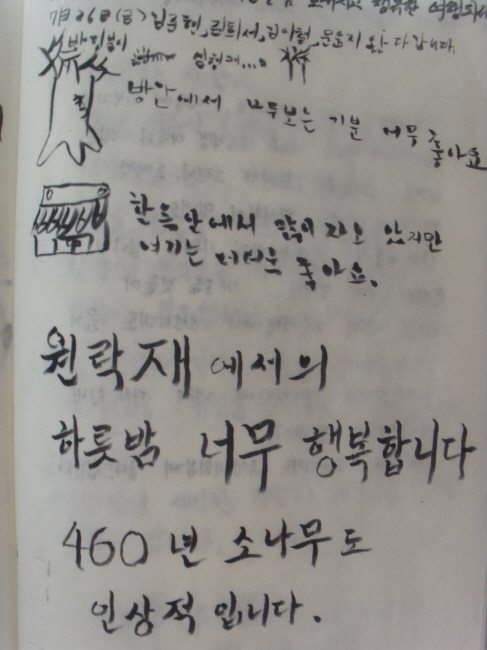 행복한 여행되시
7月 26日(금) 김준현, 김희서, 김이헌, 문윤지 왔다 갑니다.
방안에서 나무보는 기분 너무 좋아요
한옥안에서 많이 자보았지만
여기는 더더욱 좋아요.
원락재에서의
하룻밤 너무 행복합니다
460년 소나무도
인상적입니다.